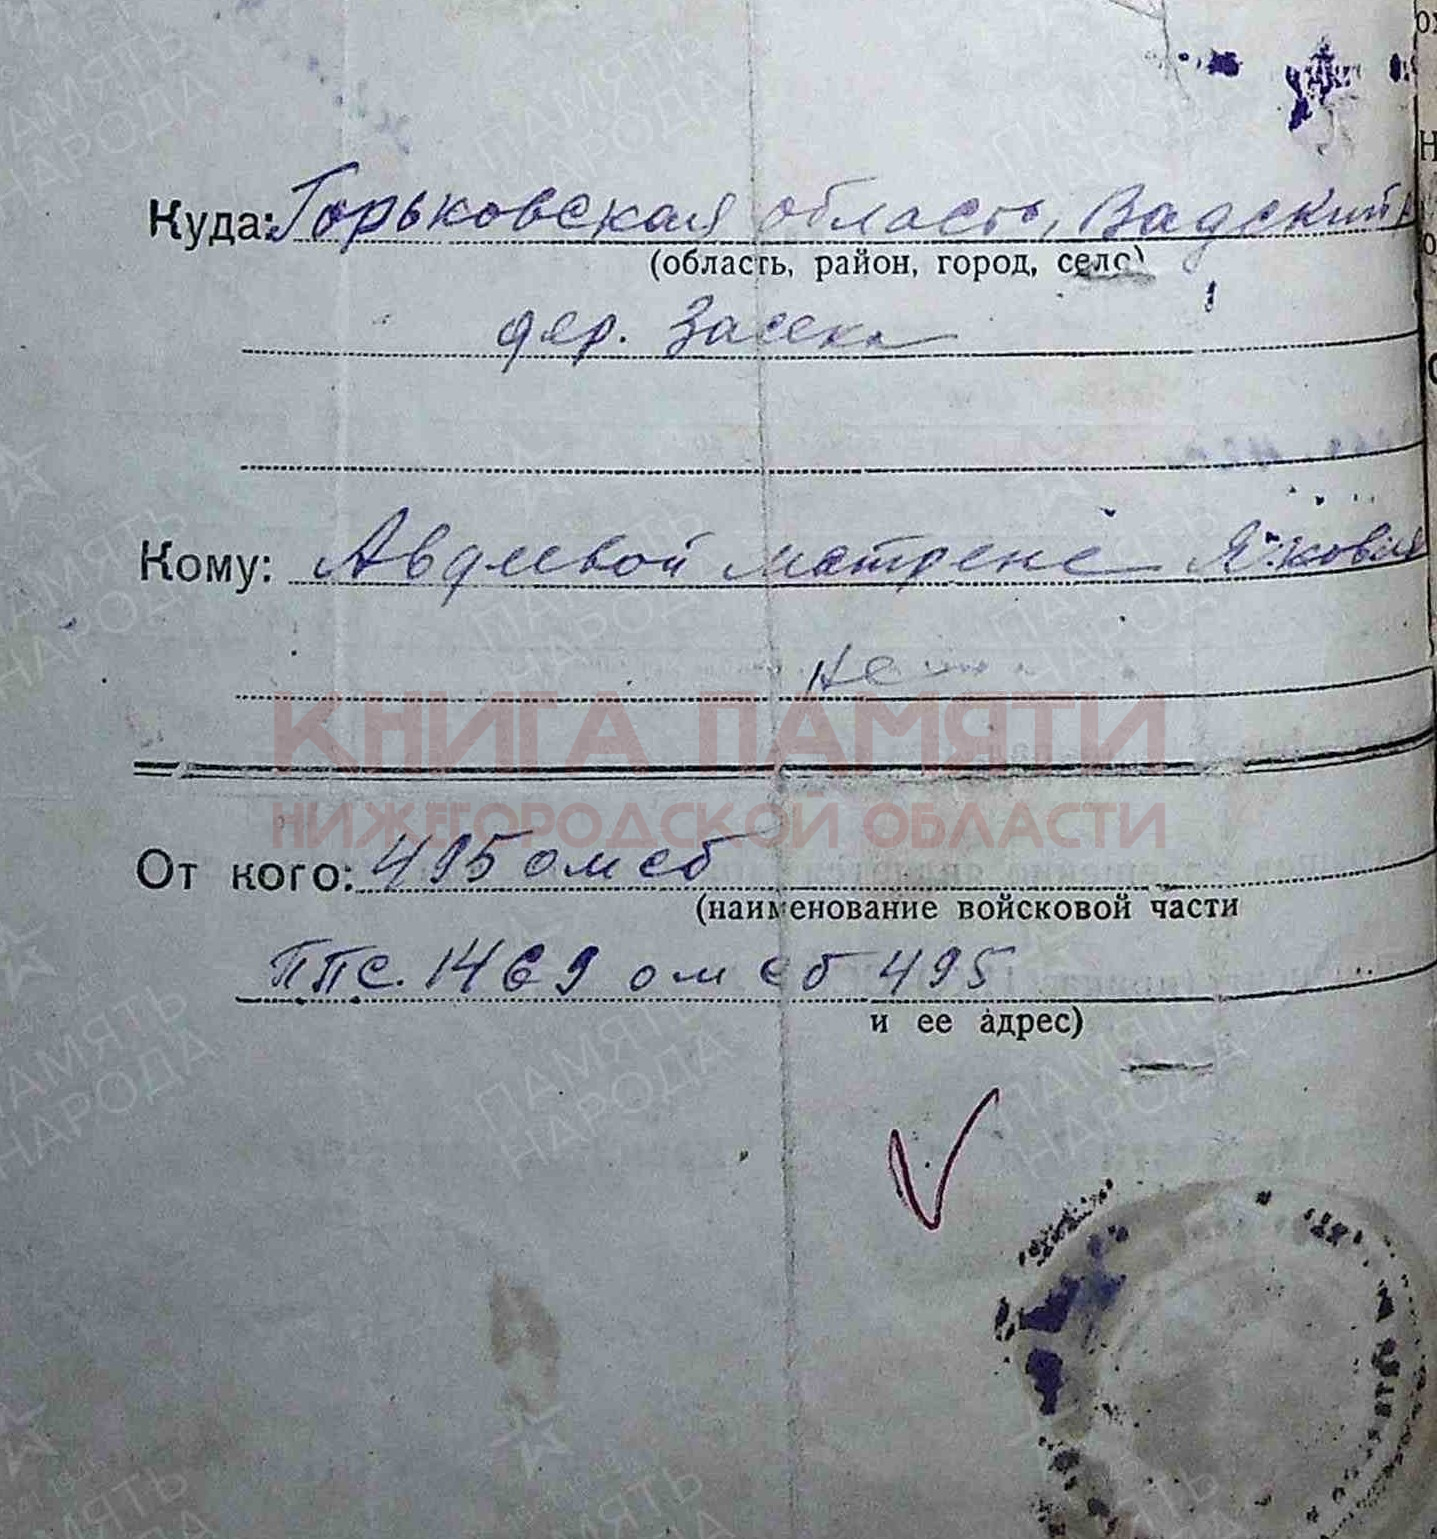 Куда: Горьковская область, Вадский
(область, район, город, село)
дер. Засека
Кому: Авдеевой Матрене Яковле
КНИГА ПАМЯТИ
НИЖЕГОРОДСКОЙ ОБЛАСТИ
От кого: 495 омсб
(наименование войсковой части
ППС. 1469 омсб 495
и ее адрес)
ПАМЯТЬ
НАРОДА